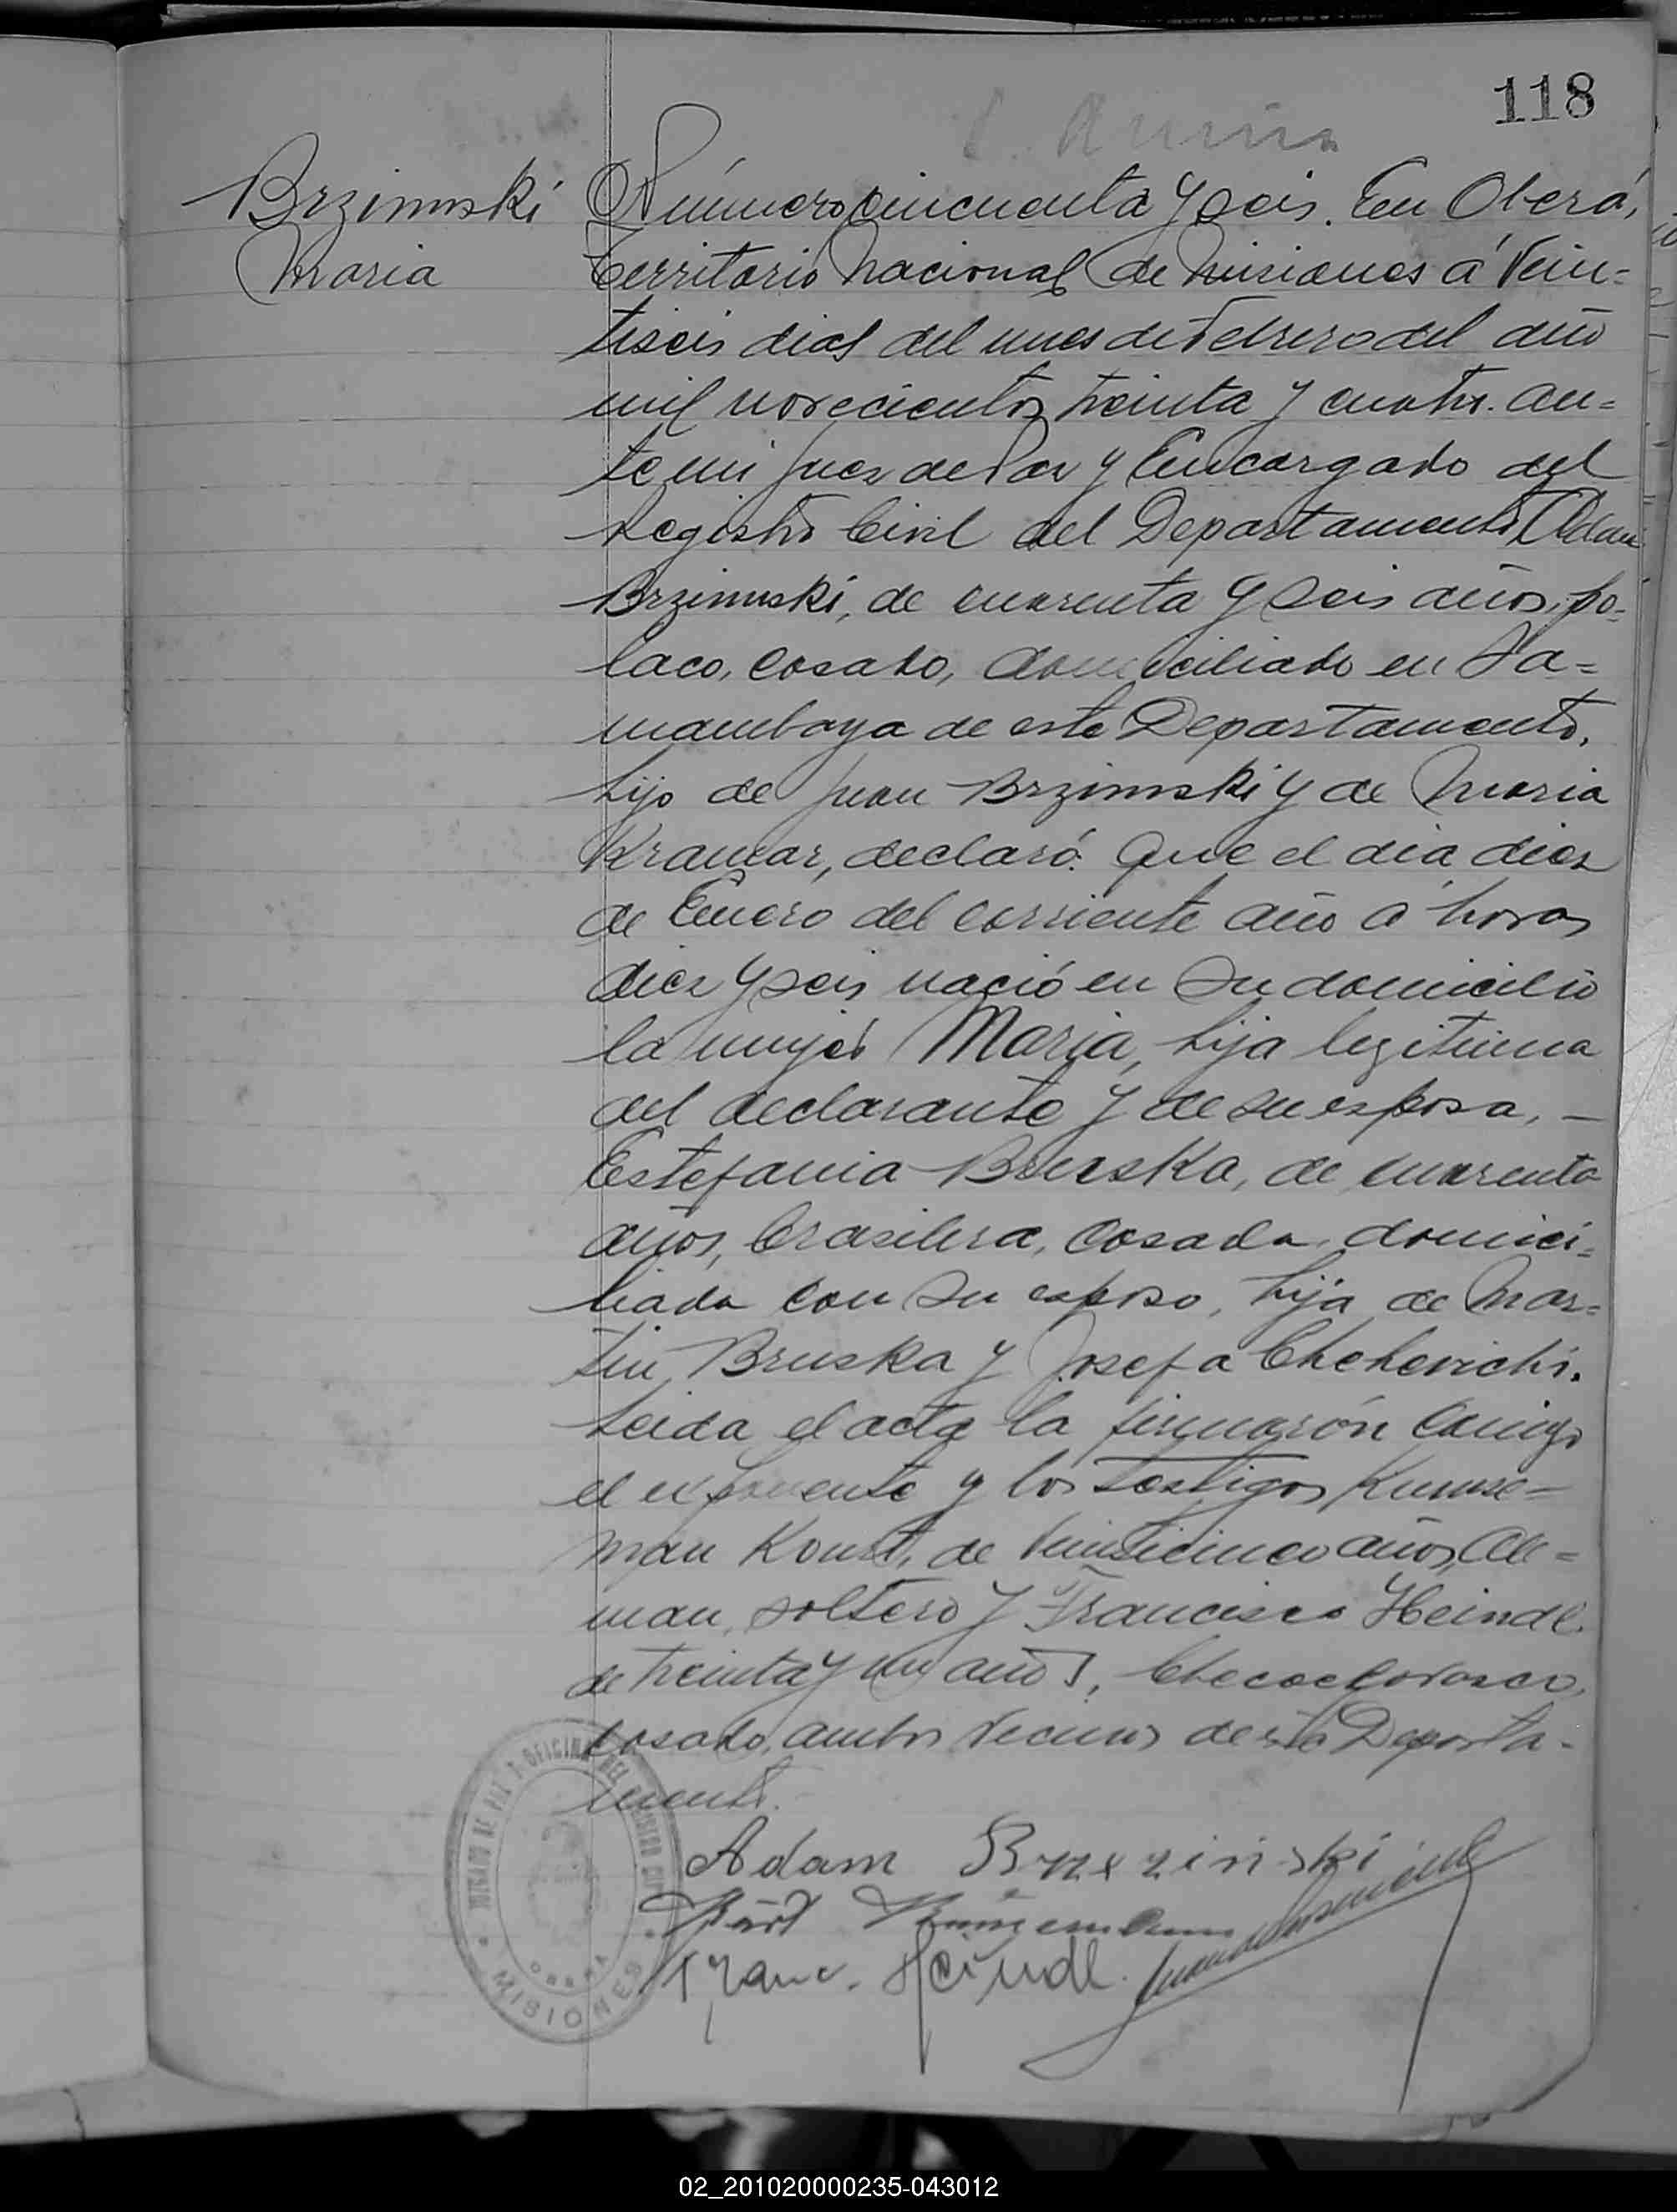 118
Brzinuski
Maria
Número cincuenta y seis. En Oberá,
Territorio Nacional de Misiones á Vein=
tiseis dias del mes de Febrero del año
mil novecientos treinta y cuatro. an=
te mi Juez de Paz y Encargado del
Registro Civil del Departamento, Adam
Brzinuski, de cuarenta y seis años, po=
laco, casado, domiciliado en Ya=
mamboya de este Departamento,
hijo de Juan Brzinuski y de Maria
Kramar, declaró: Que el dia diez
de Enero del corriente año a horas
diez y seis nació en su domicilio
la mujer Maria, hija legitima
del declarante y de su esposa, —
Estefania Bruska, de cuarenta
años, brasilera, casada, domici=
liada con su esposo, hija de Mar=
tin Bruska y Josefa Chehevichi.
Leida el acta la firmarón conmigo
el exponente y los testigos Kunse=
man Kourt, de veinticinco años, Ale=
man, soltero y Francisco Heindl
de treinta y un años, Checoeslovaco,
casado, ambos vecinos de este Departa-
mento.
Adam Brzezinski
Kurt
Franc. Heindl.
JUZGADO DE PAZ Y OFICINA DEL REGISTRO CIVIL
OBERA
MISIONES
02_201020000235-043012